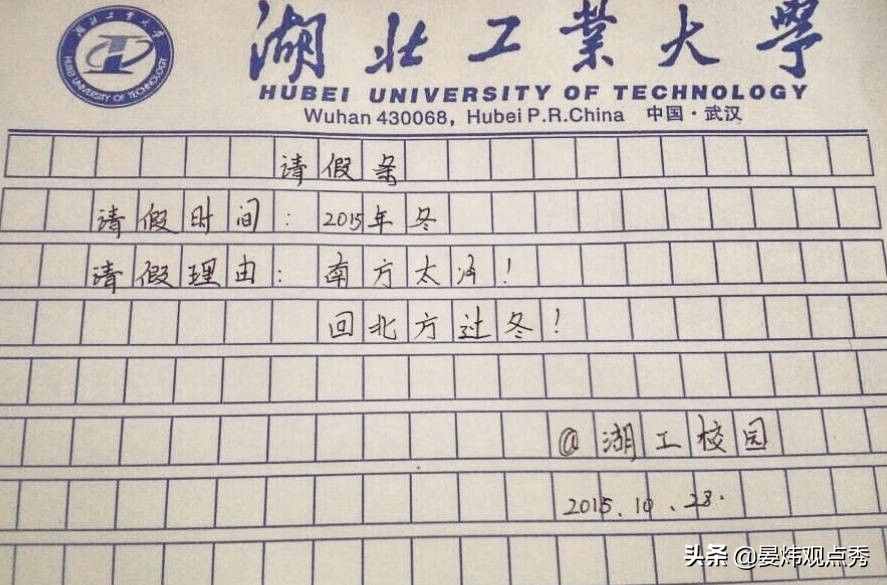 湖北工业大学
湖北工业大学
HUBEI UNIVERSITY OF TECHNOLOGY
HUBEI UNIVERSITY OF TECHNOLOGY
Wuhan 430068, Hubei P.R.China 中国·武汉
请假条
请假时间：2015年冬
请假理由：南方太冷！
回北方过冬！
@湖工校园
2015.10.28.
头条 @晏炜观点秀